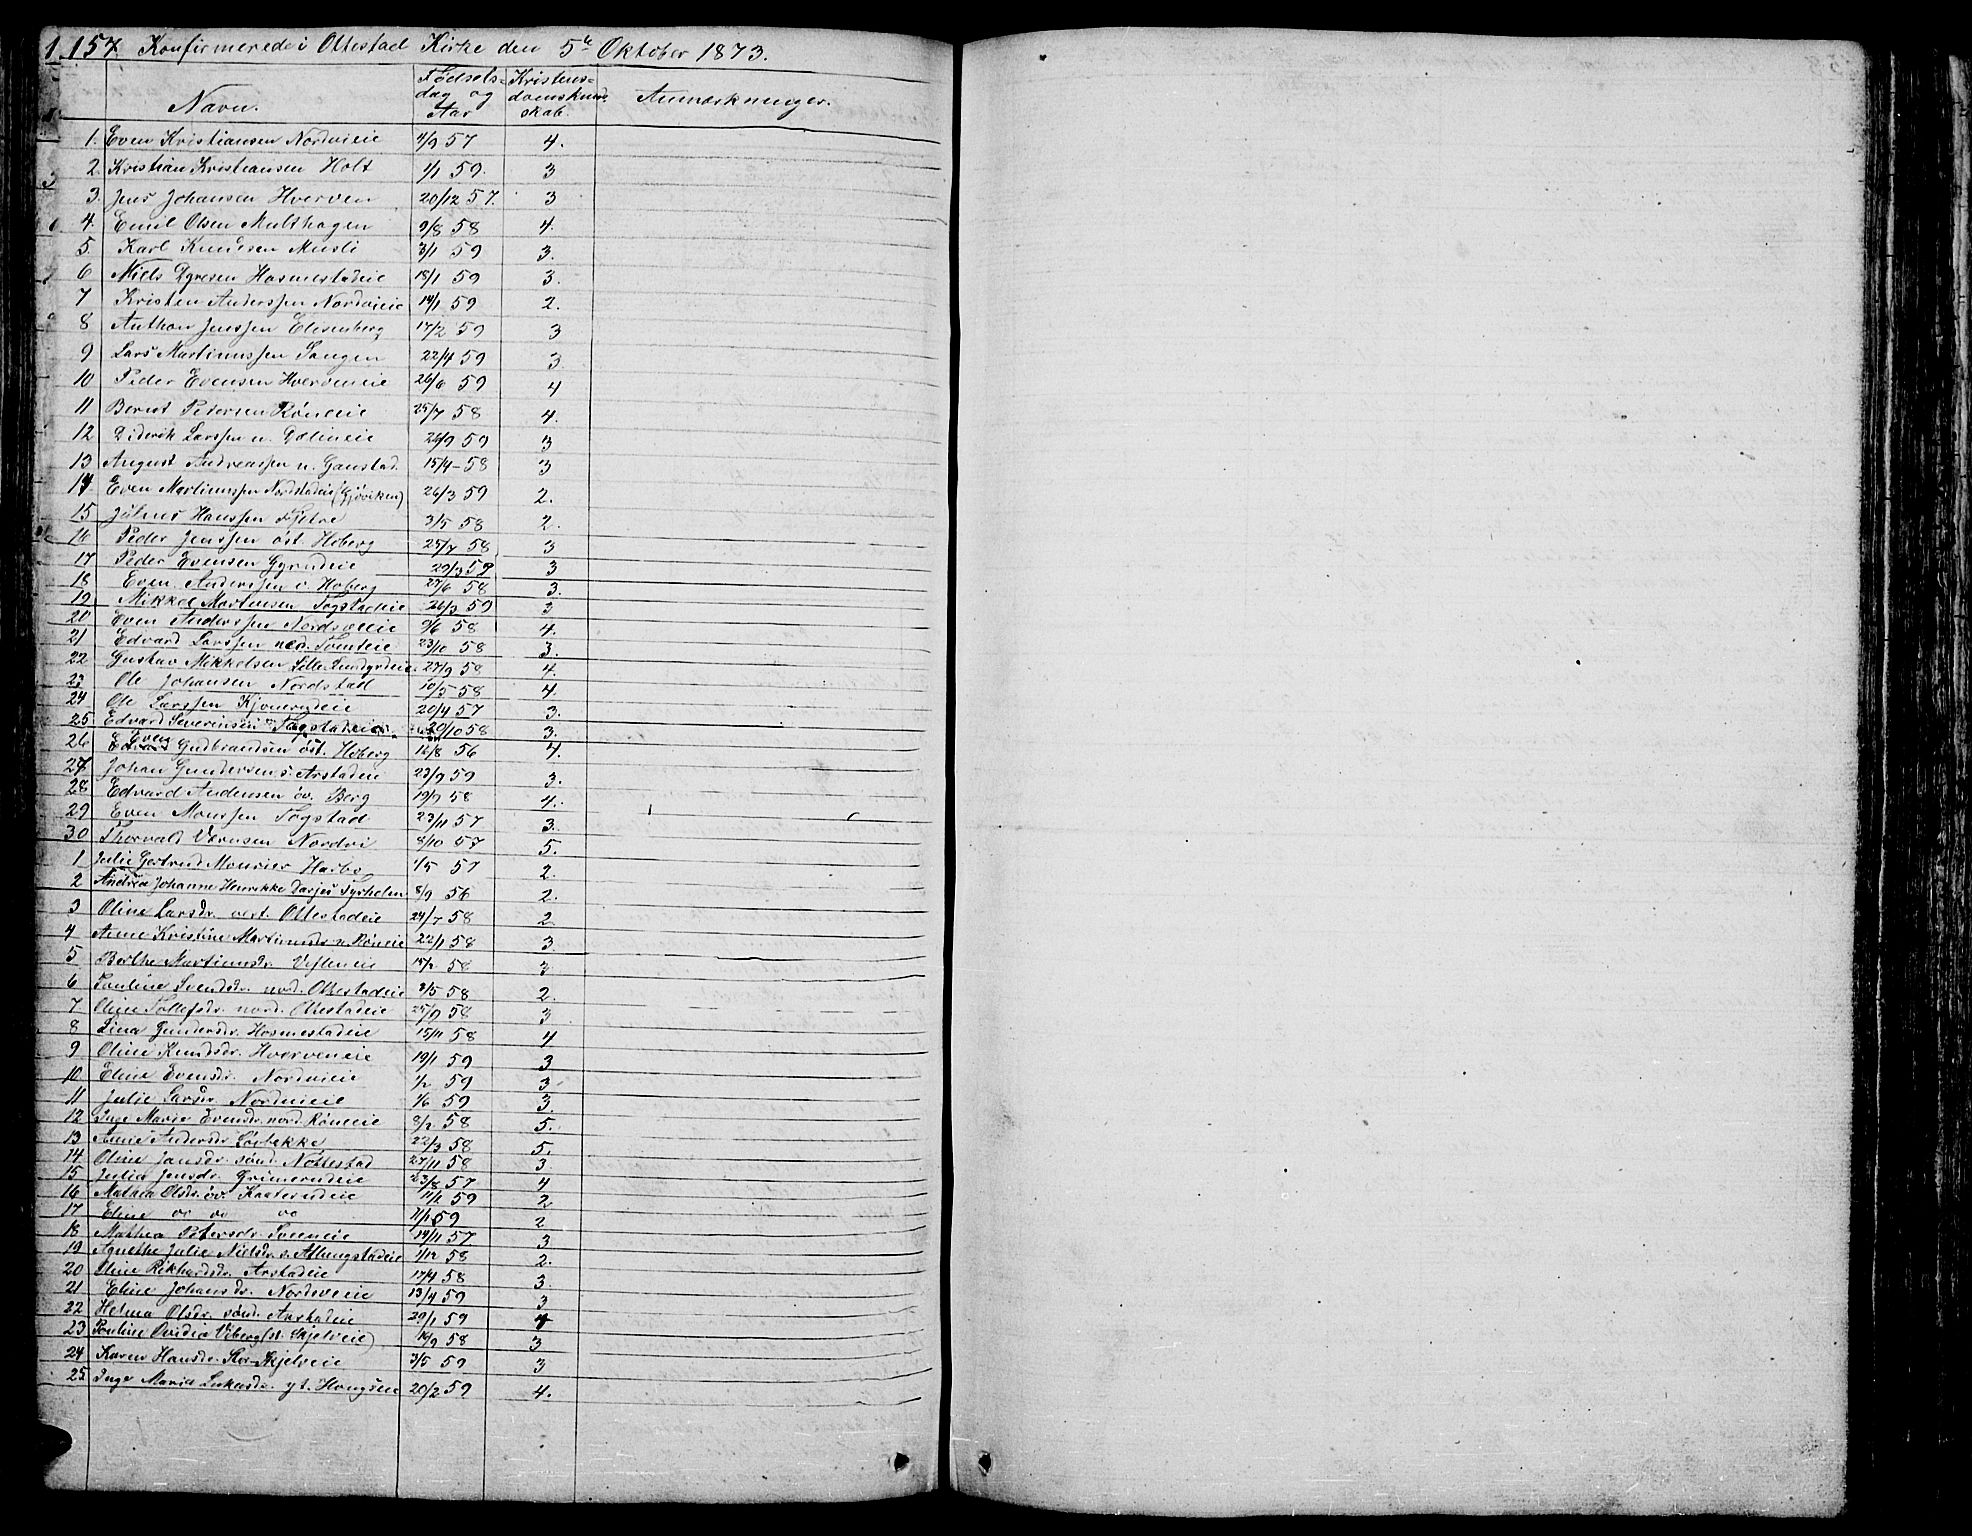 157. Konfirmerede i Ottestad Kirke den 5te Oktober 1873.
Navn. Fødsels= dag og Aar Kristens= domskund= skab. Anmærkninger.
1. Even Kristiansen Nordvieie 57 4.
2. Kristian Kristiansen Holt 1/1 59. 3
3. Jens Johansen Hverven 20/12 57. 3
4. Emil Olsen Multhagen 9/8 58 4.
5. Karl Knudsen Musli 3/1 59 3.
6 Niels Dyresen Hosmestadeie 18/1 59 3.
7 Kristen Anderssen Nordvieie 14/1 59 2.
8 Anthon Jenssen Elisenberg 17/2 59 3
9 Lars Martinussen Sangen 22/4 59 3
10 Peder Evensen Hverveneie 26/6 59 4
11 Bernt Pedersen Røneeie 25/7 58 4.
12 Diderik Larssen n. 26/9 59 3
13 August Andreassen n. Gaustad. 15/4-58 3
14 Even Martinussen Nordstadeie (Gjøviken) 26/3 59 2.
15 Hanssen Fjetre 3/5 58 2.
16 Peder Jenssen øst. Hoberg 25/7 58 3
17 Peder Evensen 29/3 59 3
18 Even Anderssen v. Hoberg 27/6 58 3.
19 Mikkel Martinsen Togstadeie 26/3 59 3
20 Even Anderssen 9/6 58 4.
21 Edvard Larssen ned. Tomteie 23/10 58 3.
22 Gustav Mikkelsen Lille 27/9 58 4.
23 Ole Johansen Nordstad 10/5 58 4.
24 Ole Larssen 20/4 57 3.
25 Edvard Severinsen Togstadeie 20/10 58 3.
26 Even Gudbrandsen øst. Hoberg 16/8 56 4.
27 Johan Gundersen s. Arstadeie 23/9 59 3.
28 Edvard Andersen øv. Berg 19/9 58 4.
29 Even Monssen Togstad 23/11 57 3.
30 Thorvald Nordvi 8/10 57 5.
1 Julie Gertrud Mourier Harbo 1/5 57 2.
2 Andrea Johanne Henrikke Tyrholm 8/9 56 2.
3 Oline Larsdr. vest. Ottestadeie 24/7 58 2
4 Anne Kristine Martinusdr. n. Røneeie 22/1 58 3.
5 Berthe Martinusdr. 58 3
6 Pauline Svendsdr. nord. Ottestadeie 58 2.
7 Oline Tollefsdr. nord. Ottestadeie 25/9 58 3
8 Lina Gundersdr. Hosmestadeie 15/11 58 4
9 Oline Knudsdr. Hverveneie 19/1 59 3
10 Eline Evensdr. Nordvieie 1/2 59 3
11 Julie Larsdr. Nordvieie 1/6 59 3.
12 Inge Marie Evensdr. nord. Røneeie 8/2 58 5.
13 Anne Andersdr. Sørbekke 22/3 58 5.
14 Oline Jansdr. sønd. Nøttestad 27/11 58 3
15 Julia Jensdr. Grimerudeie 23/8 57 4
16 Mathea Olsdr. øv. Kaaterudeie 11/1 59 2
17 Eline do do do 11/1 59 2
18 Mathea Petersdr. 19/11 57 3
19 Agnethe Julie Nielsdr. s. Allungstadeie 1/12 58 2.
20 Oline Rikhardsdr. Arstadeie 17/4 58 3.
21 Eline Johansdr. Nordvieie 13/4 59 3
22 Helma Olsdr. sønd. Arstadeie 29/1 59 4
23 Pauline Ovidia Viberg (st. Skjelveie) 58 3
24 Karen Hansdr. Stor-Skjelveie 3/5 59 3
25 Inge Maria Lukasdr. yt. 20/2 59 4.